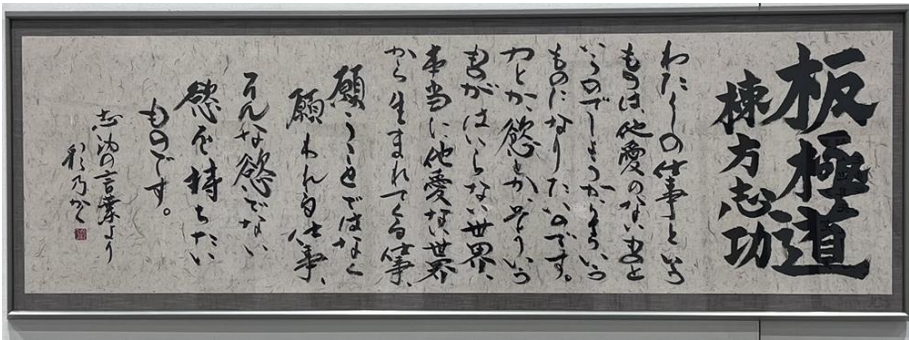 板極道
棟方志功
わたくしの仕事という
ものは他愛のないものと
いうのでしょうか、そういう
ものになりたいのです。
力とか、慾とか、そういう
ものがはいらない世界、
本当に他愛ない世界
から生まれてくる仕事、
願うことではなく
願われる仕事、
そんな慾でない
慾を持ちたい
ものです。
志功の言葉より
彩乃かく